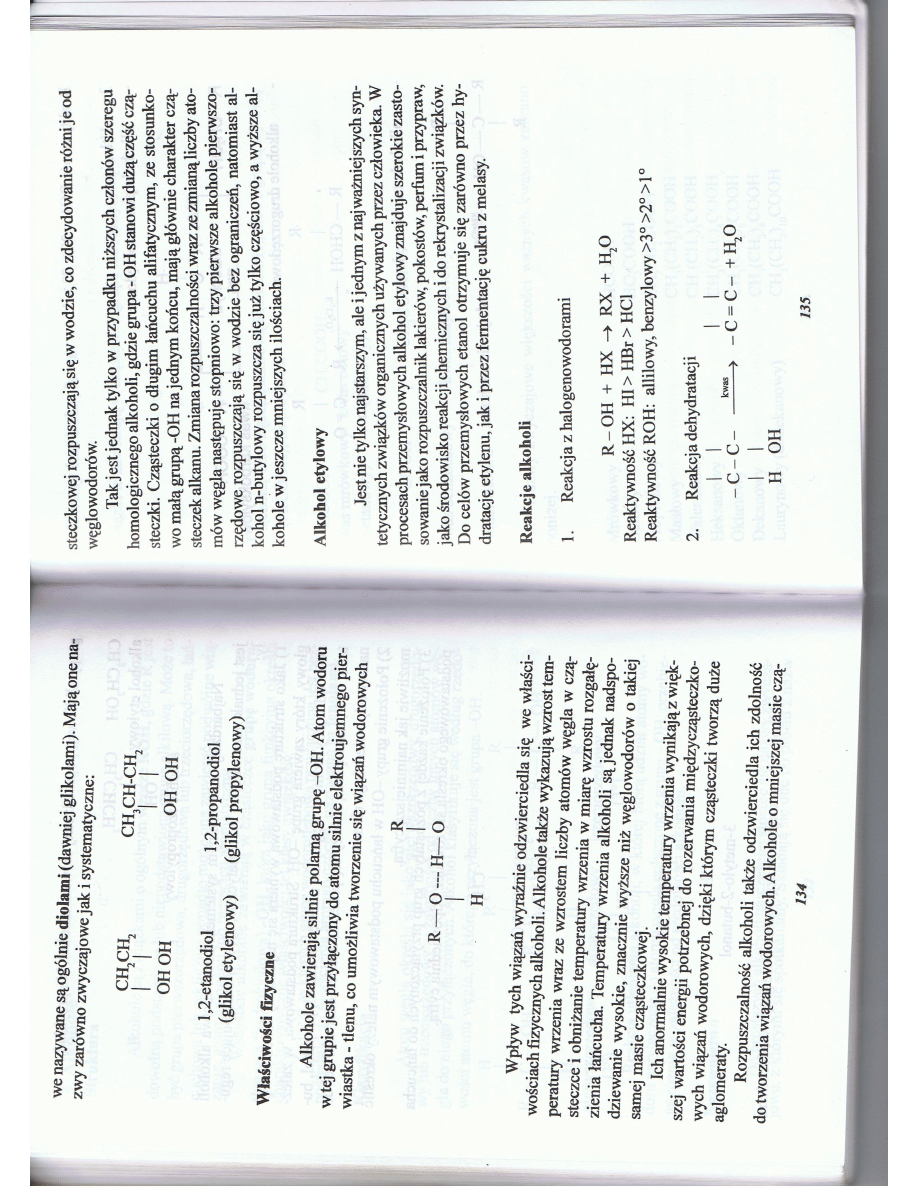 we nazywane są ogólnie diolami (dawniej glikolami). Mają one na-
zwy zarówno zwyczajowe jak i systematyczne:
CH₂CH₂ CH₃CH-CH₂
| | | |
OH OH OH OH
1,2-etanodiol 1,2-propanodiol
(glikol etylenowy) (glikol propylenowy)
Właściwości fizyczne
Alkohole zawierają silnie polarną grupę –OH. Atom wodoru
w tej grupie jest przyłączony do atomu silnie elektroujemnego pier-
wiastka - tlenu, co umożliwia tworzenie się wiązań wodorowych
R
|
R — O --- H — O
|
H
Wpływ tych wiązań wyraźnie odzwierciedla się we właści-
wościach fizycznych alkoholi. Alkohole także wykazują wzrost tem-
peratury wrzenia wraz ze wzrostem liczby atomów węgla w czą-
steczce i obniżanie temperatury wrzenia w miarę wzrostu rozgałę-
zienia łańcucha. Temperatury wrzenia alkoholi są jednak nadspo-
dziewanie wysokie, znacznie wyższe niż węglowodorów o takiej
samej masie cząsteczkowej.
Ich anormalnie wysokie temperatury wrzenia wynikają z więk-
szej wartości energii potrzebnej do rozerwania międzycząsteczko-
wych wiązań wodorowych, dzięki którym cząsteczki tworzą duże
aglomeraty.
Rozpuszczalność alkoholi także odzwierciedla ich zdolność
do tworzenia wiązań wodorowych. Alkohole o mniejszej masie czą-
134
steczkowej rozpuszczają się w wodzie, co zdecydowanie różni je od
węglowodorów.
Tak jest jednak tylko w przypadku niższych członów szeregu
homologicznego alkoholi, gdzie grupa - OH stanowi dużą część czą-
steczki. Cząsteczki o długim łańcuchu alifatycznym, ze stosunko-
wo małą grupą -OH na jednym końcu, mają głównie charakter czą-
steczek alkanu. Zmiana rozpuszczalności wraz ze zmianą liczby ato-
mów węgla następuje stopniowo: trzy pierwsze alkohole pierwszo-
rzędowe rozpuszczają się w wodzie bez ograniczeń, natomiast al-
kohol n-butylowy rozpuszcza się już tylko częściowo, a wyższe al-
kohole w jeszcze mniejszych ilościach.
Alkohol etylowy
Jest nie tylko najstarszym, ale i jednym z najważniejszych syn-
tetycznych związków organicznych używanych przez człowieka. W
procesach przemysłowych alkohol etylowy znajduje szerokie zasto-
sowanie jako rozpuszczalnik lakierów, pokostów, perfum i przypraw,
jako środowisko reakcji chemicznych i do rekrystalizacji związków.
Do celów przemysłowych etanol otrzymuje się zarówno przez hy-
dratację etylenu, jak i przez fermentację cukru z melasy.
Reakcje alkoholi
1. Reakcja z halogenowodorami
R – OH + HX → RX + H₂O
Reaktywność HX: HI > HBr > HCl
Reaktywność ROH: allilowy, benzylowy >3° >2° >1°
2. Reakcja dehydratacji
| | | |
– C – C – kwas → – C = C – + H₂O
| |
H OH
135